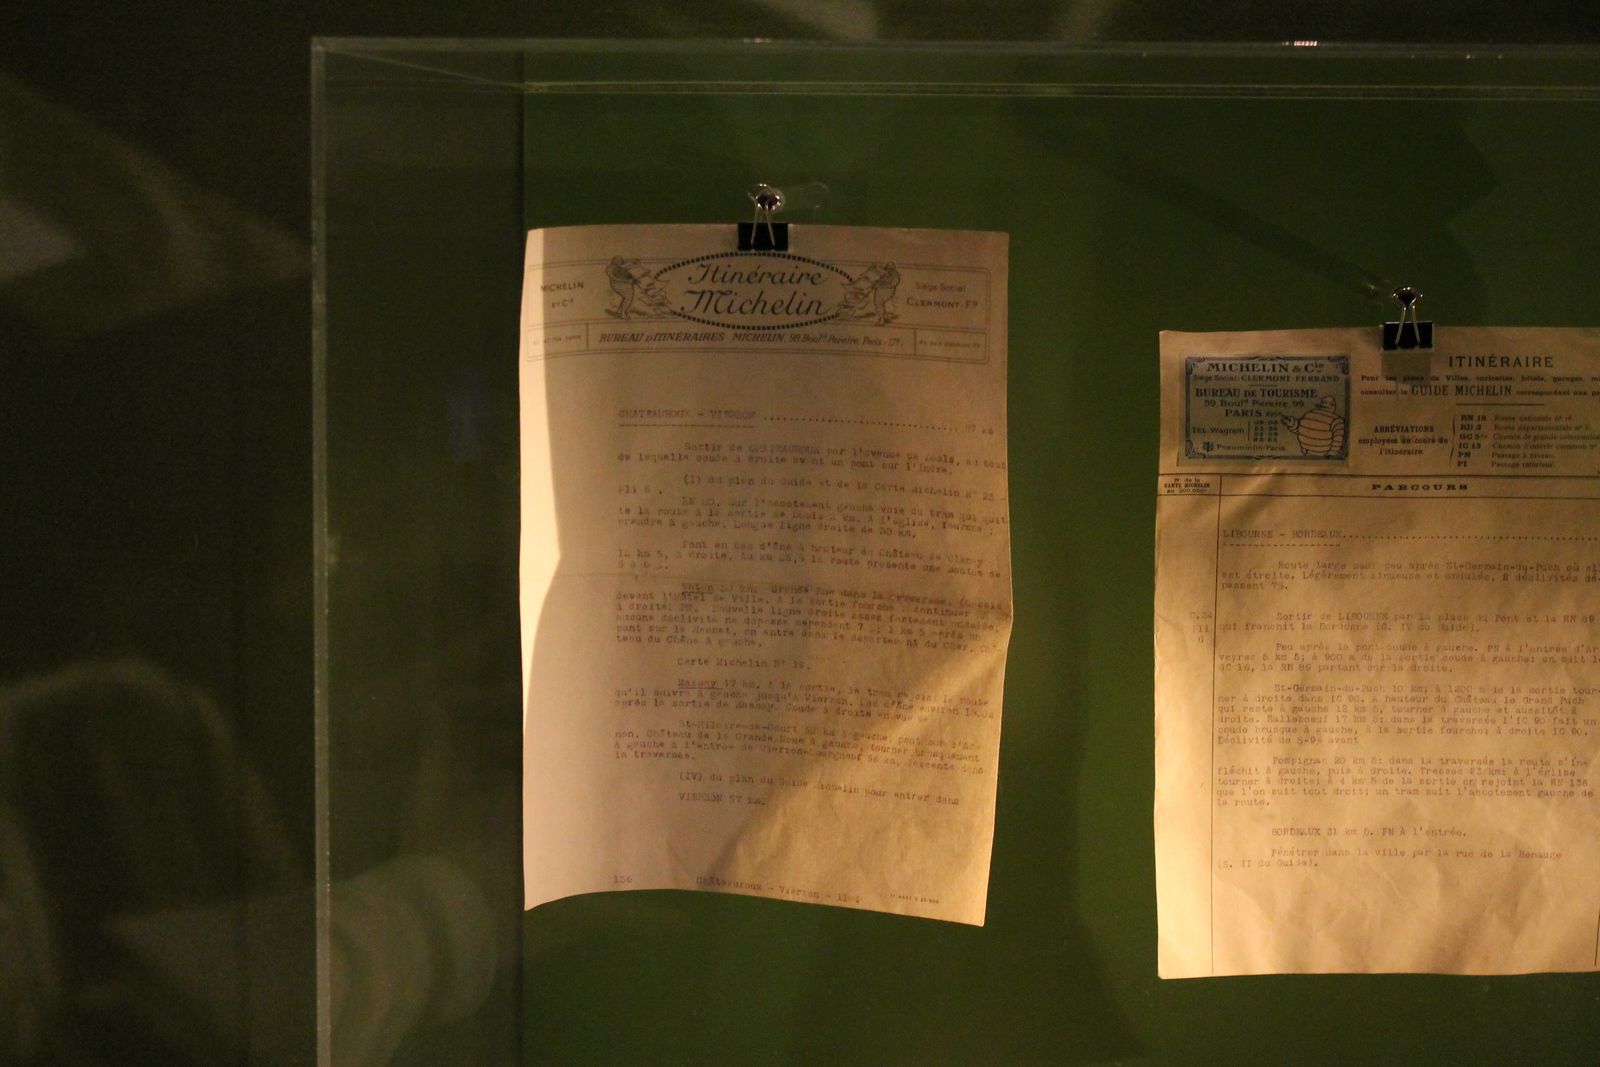 MICHELIN
ET Cie
Itinéraire
Michelin
Siège Social
CLERMONT-Fd
BUREAU D'ITINÉRAIRES MICHELIN 99 Bould Pereire, Paris-17e
CHATEAUROUX - VIERZON
Sortir de CHATEAUROUX par l'avenue de Déols, au bout
de laquelle coude à droite avant un pont sur l'Indre.
(I) du plan du Guide et de la Carte Michelin N° 23 -
Pli 6 .
sur l'accotement gauche voie du tram qui quit
te la route à la sortie de Déols 2 km. A l'église, fourche ;
prendre à gauche. Longue ligne droite de 35 km.
Pont en dos d'âne à hauteur du Château de
12 km 5, à droite. Au km la route présente une
Vatan km. Grande Rue dans la traversée.
devant l'Hôtel de Ville. A la sortie fourche : continuer
à droite; PN. Nouvelle ligne droite assez fortement ondulée,
aucune déclivité ne dépasse cependant 1 km 5 après un
pont sur le on entre dans le département du Cher. Châ-
teau du Chêne à gauche.
Carte Michelin N° 19.
Massay 47 km. A la sortie, le tram rejoint la route
qu'il suivra à gauche jusqu'à Vierzon. Dos d'âne environ
après la sortie de Massay. Coude à droite en vue de
St-Hilaire-de-Court à gauche, pont sur l'Ar-
non. Château de la Grande Roue à gauche, tourner brusquement
à gauche à l'entrée de Vierzon-Bourgneuf 56 km, descente dans
la traversée.
(IV) du plan du Guide Michelin pour entrer dans
VIERZON 57 km.
136
Châteauroux - Vierzon -
MICHELIN & Cie
Siège Social: CLERMONT-FERRAND
BUREAU DE TOURISME
99, Bould Pereire, 99
PARIS
TEL. Wagram
Pneumiclin-Paris
ITINÉRAIRE
Pour les plans de Villes, curiosités, hôtels, garages,
consulter le GUIDE MICHELIN correspondant aux
ABRÉVIATIONS
employées au cours de
l'itinéraire.
RN 18 Route nationale n° 18.
RD 3 Route départementale n° 3.
GC Chemin de grande
IC 13 Chemin d'intérêt commun n°
PN Passage à niveau.
PI Passage inférieur.
N° de la
CARTE MICHELIN
au 200.000e
PARCOURS
LIBOURNE - BORDEAUX
Route large sauf peu après St-Germain-du-Puch où
est étroite. Légèrement sinueuse et ondulée, 2 déclivités dé-
passent 7%.
Sortir de LIBOURNE par la place du Pont et la RN 89
qui franchit la Dordogne (S. IV du Guide).
Peu après le pont coude à gauche. PN à l'entrée d'Ar
veyres 5 km 5; à 900 m de la sortie coude à gauche: on suit
GC 18, la RN 89 partant sur la droite.
St-Germain-du-Puch 10 km; à 1200 m de la sortie tour-
ner à droite dans IC 90. A hauteur du Château le Grand Puch
qui reste à gauche 12 km 5, tourner à gauche et aussitôt à
droite. Salleboeuf 17 km 5: dans la traversée l'IC 90 fait un
coude brusque à gauche, à la sortie fourche: à droite IC 90.
Déclivité de 8-9% avant
Pompignac 20 km 5: dans la traversée la route s'in-
fléchit à gauche, puis à droite. Tresses 23 km: à l'église
tourner à droite; à 4 km 5 de la sortie on rejoint la RN 136
que l'on suit tout droit; un tram suit l'accotement gauche de
la route.
BORDEAUX 31 km 5. PN à l'entrée.
Pénétrer dans la ville par la rue de la Benauge
(S. II du Guide).